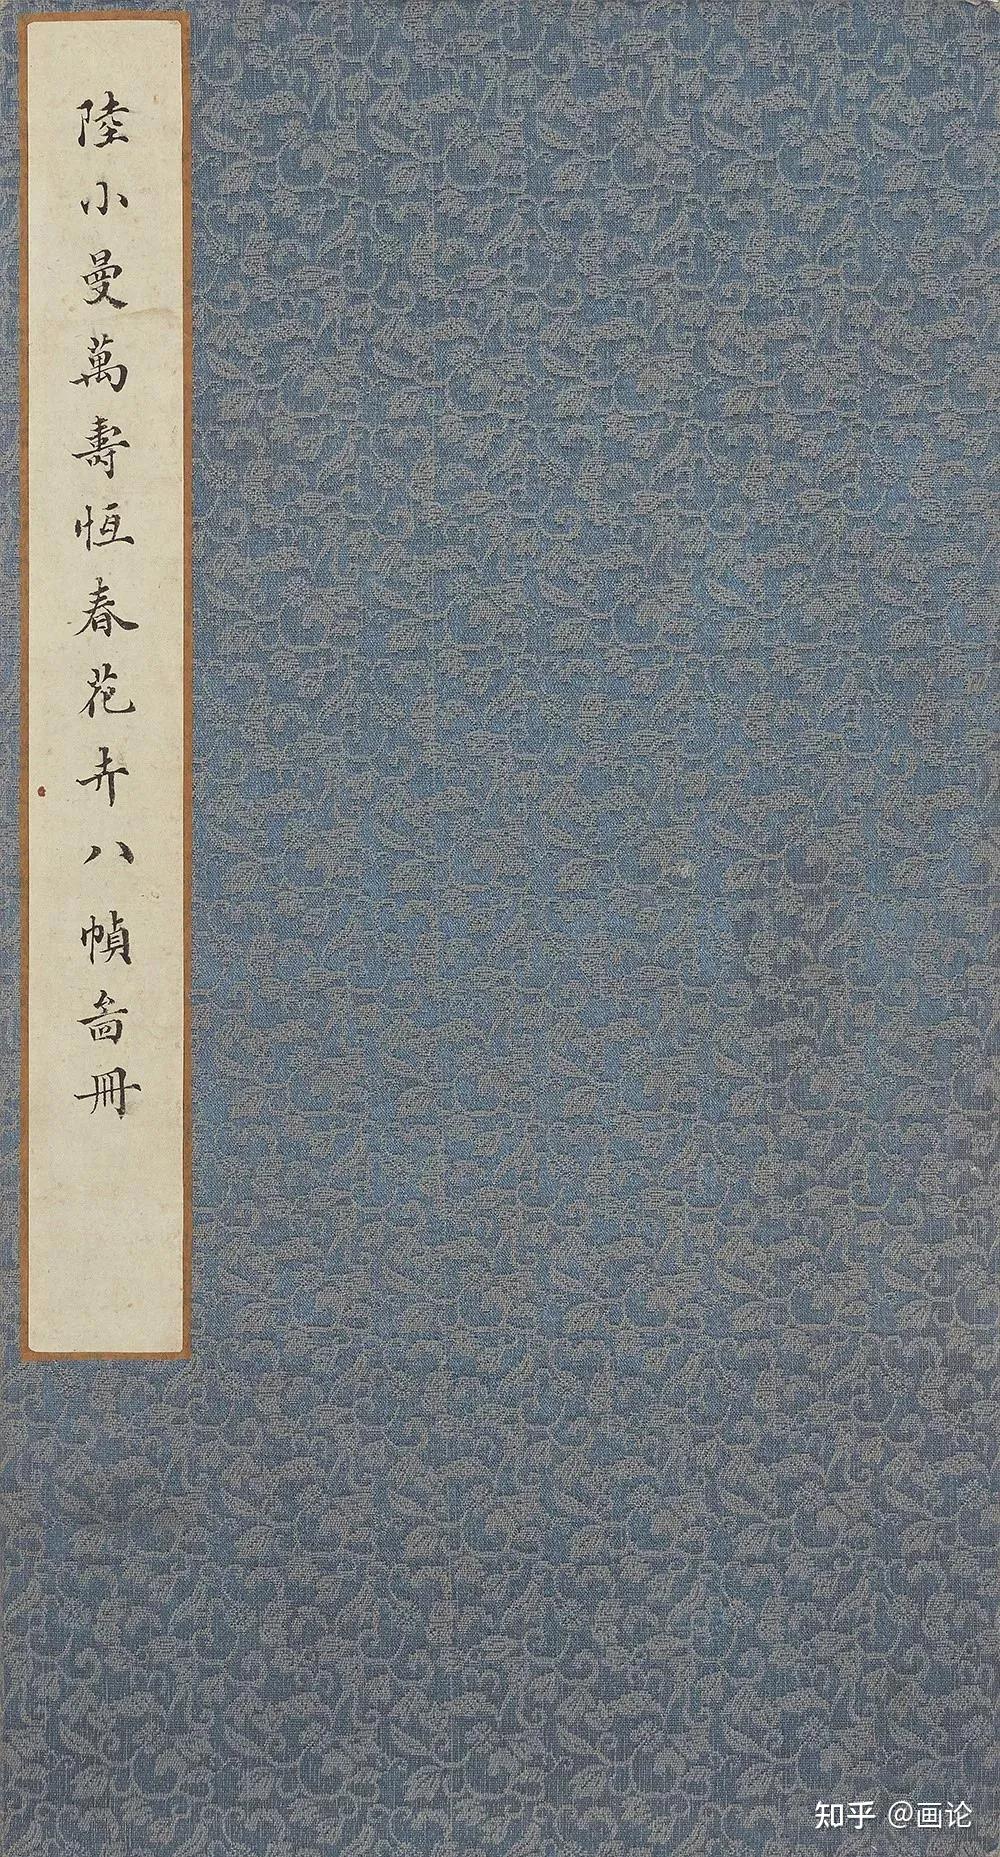 陸小曼萬壽恆春花卉八幀畵冊
知乎 @画论